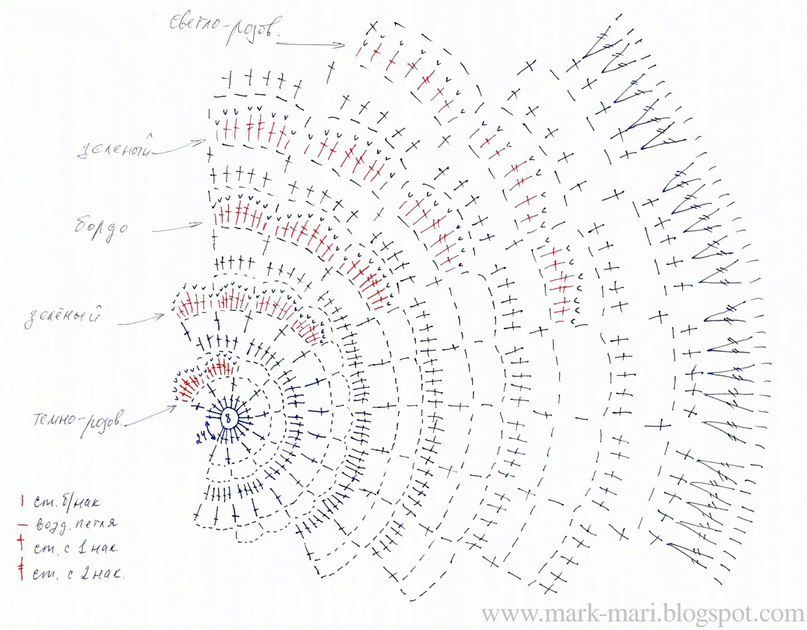 светло-розов.
зелёный
бордо
зелёный
темно-розов.
8
24
ст. б/нак
возд. петля
ст. с 1 нак.
ст. с 2 нак.
www.mark-mari.blogspot.com